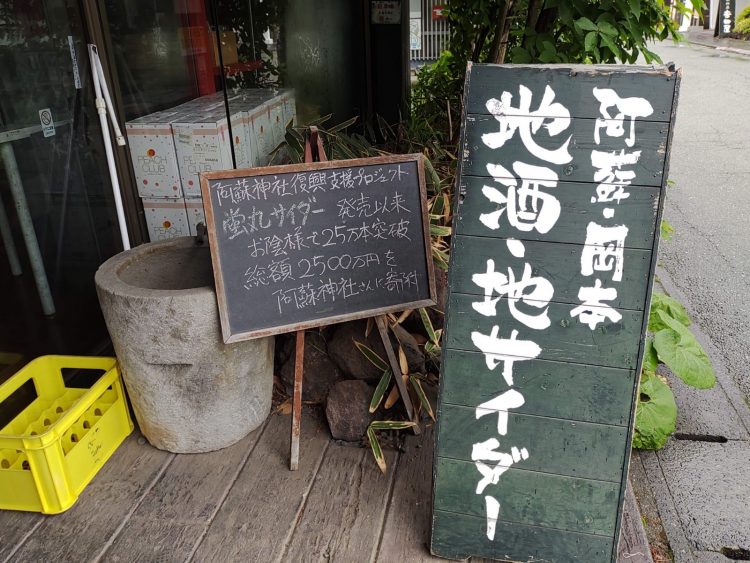 阿蘇神社復興支援プロジェクト
蛍丸サイダー 発売以来
お陰様で25万本突破
総額2500万円を
阿蘇神社さんに寄納
阿蘇・岡本
地酒・地サイダー
PEACH
CLUB